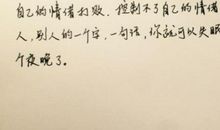 自己的情绪打败。控制不了自己的情绪
人，别人的一个字，一句话，你就可以失眠
个夜晚了。